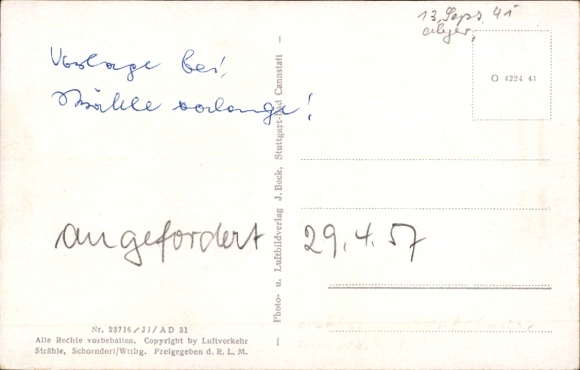 13. Sept. 41
O 4224 41
Vorlage bei
Strähle vorlange!
angefordert 29.4.57
Photo- u. Luftbildverlag J. Beck, Stuttgart-Bad Cannstatt
Nr. 23716/JJ/AD 31
Alle Rechte vorbehalten. Copyright by Luftverkehr
Strähle, Schorndorf/Wttbg. Freigegeben d. R. L. M.